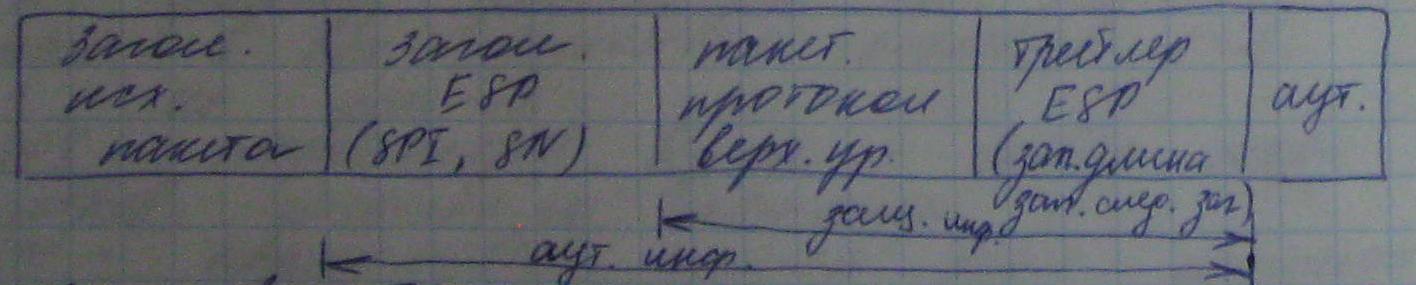 загол.
исх.
пакета
загол.
ESP
(SPI, SN)
пакет.
протокол
верх. ур.
трейлер
ESP
(зап. длина
зап. след. заг)
аут.
защ. инф.
аут. инф.